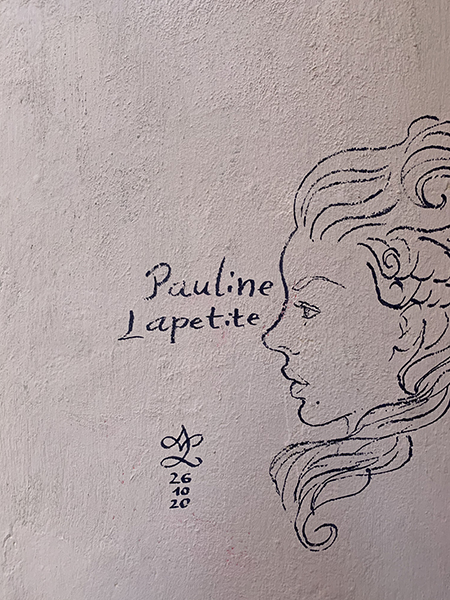 Pauline
Lapetite
26
10
20